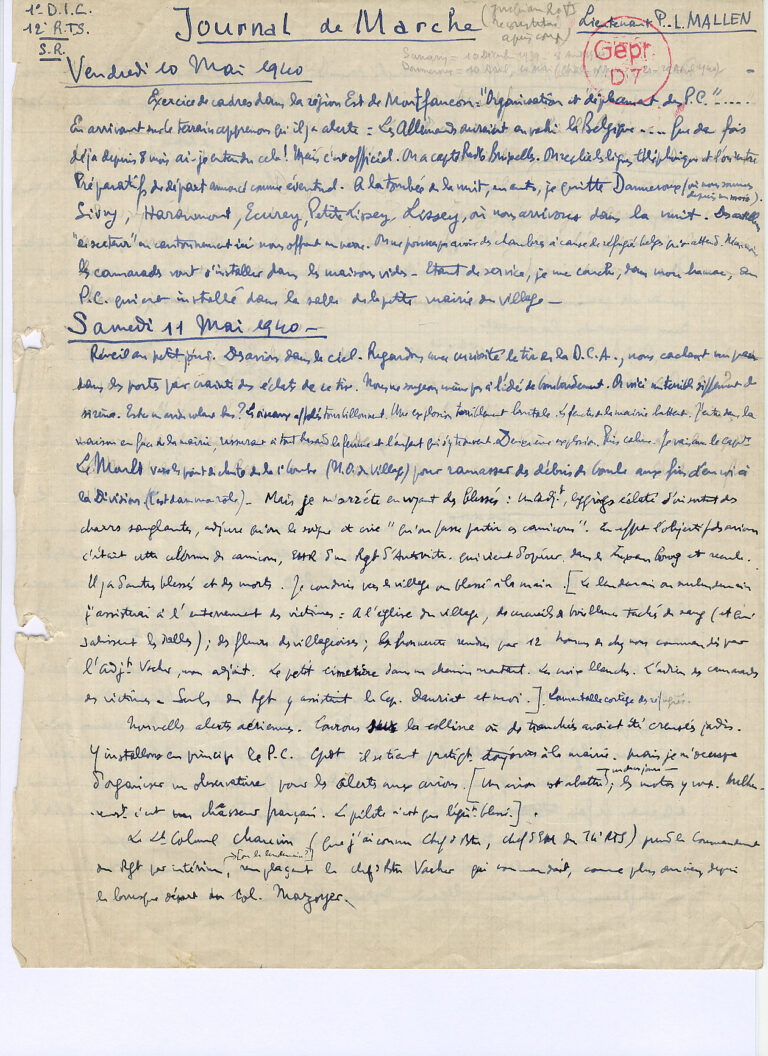 1e D.I.C.
12e R.T.S.
S.R.
Journal de Marche
(jusqu'au 20 ts
reconstitué
après coup)
Lieutenant P. L. MALLEN
Gepr
D 7
Vendredi 10 Mai 1940
Exercice de cadres dans la région Est de Montfaucon : "Organisation et déplacement des P.C." .....
En arrivant sur le terrain apprenons qu'il y a alerte = Les Allemands auraient envahi la Belgique .... Que de fois
déjà depuis 8 mois ai-je entendu cela ! Mais c'est officiel. On a capté Radio Bruxelles. On replie les lignes téléphoniques et l'on rentre
Préparatifs de départ annoncé comme éventuel. A la tombée de la nuit, en auto, je quitte Dannevoux (où nous sommes
depuis un mois).
Sivry, Haraumont, Ecurey, Petite Lissey, Lissey, où nous arrivons dans la nuit. Des
en cantonnement ici nous offrent un verre. On ne pourra pas avoir des chambres à cause de réfugiés belges qu'on attend.
les camarades vont s'installer dans les maisons vides - Etant de service, je me couche, dans mon hamac, au
P.C. qui est installé dans la salle de la petite mairie du village -
Samedi 11 Mai 1940 -
Réveil au petit jour. Des avions dans le ciel. Regardons avec curiosité le tir de la D.C.A., nous cachant un peu
dans les portes par crainte des éclats de ce tir. Nous ne songeons même pas à l'idée de bombardement. Or voici un terrible sifflement de
sirène. Est-ce un avion volant bas ? Les oiseaux affolés tourbillonnent. Une explosion terriblement brutale. Les fenêtres de la mairie battent. J'entre dans la
maison en face de la mairie, rassurer à tout hasard la femme et l'enfant qui s'y trouvent. Deuxième explosion. Puis calme. Je vais avec le capne
Le Mault vers le point de chute de la 1e bombe (N.O. du village) pour ramasser des débris de bombe aux fins d'envoi à
la Division (c'est dans mon rôle) - Mais je m'arrête en voyant des blessés : un adjt,
charrs sanglantes, adjure qu'on le soigne et crie "qu'on fasse partir ces camions". En effet l'objectif des avions
c'était cette colonne de camions, d'un Rgt d'Autos qui vient d'opérer dans le Luxembourg et recule.
Il y a d'autres blessés et des morts. Je conduis vers le village un blessé à la main. [Le lendemain ou surlendemain
j'assisterai à l'enterrement des victimes = A l'église du village, des cercueils de bois blanc tachés de sang (et
salissent les dalles) ; des fleurs des villageoises ; les honneurs rendus par 12 hommes de chez nous commandés par
l'Adjt Vacher, mon adjoint. Le petit cimetière dans un chemin montant. Les croix blanches. L'adieu des camarades
des victimes - Seuls du Rgt y assistent le Cap. Dauriat et moi.]. Lamentables cortèges des réfugiés.
Nouvelles alertes aériennes. Courons sur la colline où des tranchées avaient été creusées jadis.
Y installons en principe le P.C. Cpdt il se tient toujours à la mairie. Mais je m'occupe
d'organiser un observatoire pour les alertes aux avions. [Un avion est abattu, les motos y vont.
c'est un chasseur français. Le pilote n'est que légèrt blessé.].
Le Lt Colonel Chauvin (que j'ai connu Chef d Btn, chef d'EM du 14e RTS) prend le Commandement
du Rgt par intérim, (ou le lendemain ?) remplaçant le chef d Btn Vacher qui commandait, comme plus ancien depuis
le brusque départ du Col. Mazoyer.